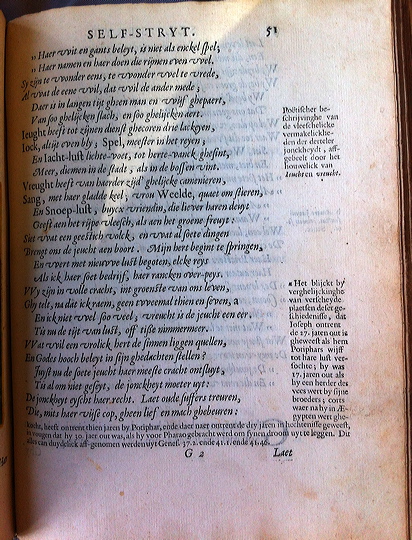 SELF-STRYT. 51
„ Haer vvit en gants beleyt, is niet als enckel spel;
„ Haer namen en haer doen die rijmen even vvel.
Sy zijn te vvonder eens, te vvonder vvel te vrede,
Al vvat de eene vvil, dat vvil de ander mede;
Daer is in langen tijt gheen man en vvijf ghepaert,
Van soo ghelijcken slach, en soo ghelijcken aert.
Ieught heeft tot zijnen dienst ghecoren drie lackeyen,
Iock, altijt even bly; Spel, meester in het reyen;
En Iacht-lust lichte-voet, tot herte-vanck ghesint,
Meer, diemen in de stadt, als in de bossen vint.
Vreught heeft van haerder zijd' ghelijcke camenieren,
Sang, met haer gladde keel; vrou Weelde, quaet om stieren,
En Snoep-lust, buycx vriendin, die liever haren deuyt
Geeft aen het rijpe vleesch, als aen het groene fruyt:
Siet vvat een geestich volck, en vvat al soete dingen
Brengt ons de jeucht aen boort. Mijn hert begint te springen,
En vvert met nieuvve lust begoten, elcke reys
Als ick haer soet bedrijf, haer rancken over-peys.
VVy zijn in volle cracht, int groenste van ons leven,
Ghy telt, na dat ick raem, geen tvveemael thien en seven, a
En ick niet vvel soo veel; vreucht is de jeucht een eer.
Tis nu de tijt van lust, oft tisse nimmermeer.
VVat vvil een vrolick hert de sinnen liggen quellen,
En Godes hooch beleyt in sijn ghedachten stellen?
Juyst nu de soete jeucht haer meeste cracht ontsluyt,
Tis al om niet geseyt, de jonckheyt moeter uyt:
De jonckheyt eyscht haer recht. Laet oude suffers treuren,
Die, mits haer vvijse cop, gheen lief en mach ghebeuren:
Politischer be-
schrijvinghe van
de vleeschelicke
vermakelickhe-
den der derteler
jonckheydt, aff-
gebeelt door het
houwelick van
Ieucht en vreucht.
a Het blijckt by
verghelijckinghe
van verscheyde
plaetsen deser ge-
schiedenisse, dat
Ioseph ontrent
de 27. jaren out is
gheweest als hem
Potiphars wijff
tot hare lust ver-
sochte; hy was
17. jaren out als
hy een herder des
vees wert by sijne
broeders; corts
waer na hy in Æ-
gypten wert ghe-
kocht, heeft ontrent thien jaren by Potiphar, ende daer naer ontrent de dry jaren in hechtenisse geweest,
in vougen dat hy 30. jaer out was, als hy voor Pharao gebracht werd om synen droom uyt te leggen. Dit
alles can duydelick aff-genomen werden uyt Genes. 37. 2. ende 41. 1. ende 41. 46.
G 2 Laet